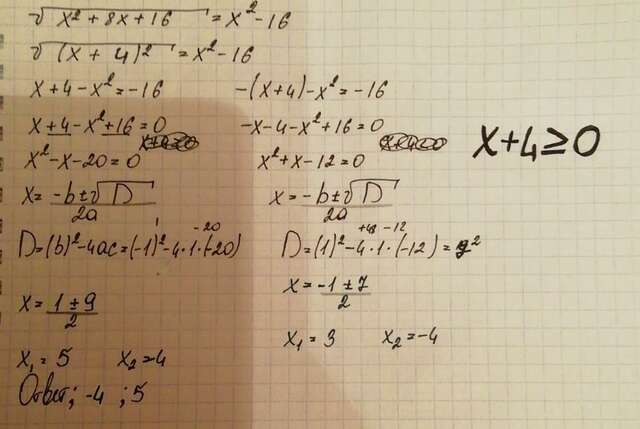 √(x²+8x+16) = x²-16
√(x+4)² = x²-16
x+4-x²=-16
-(x+4)-x²=-16
x+4-x²+16=0
-x-4-x²+16=0
x²-x-20=0
x²+x-12=0
x+4≥0
x=(-b±√D)/2a
x=(-b±√D)/2a
-20
D=(b)²-4ac=(-1)²-4·1·(-20)
+48 -12
D=(1)²-4·1·(-12)=7²
x=(1±9)/2
x=(-1±7)/2
x₁=5 x₂=-4
x₁=3 x₂=-4
Ответ; -4 ; 5